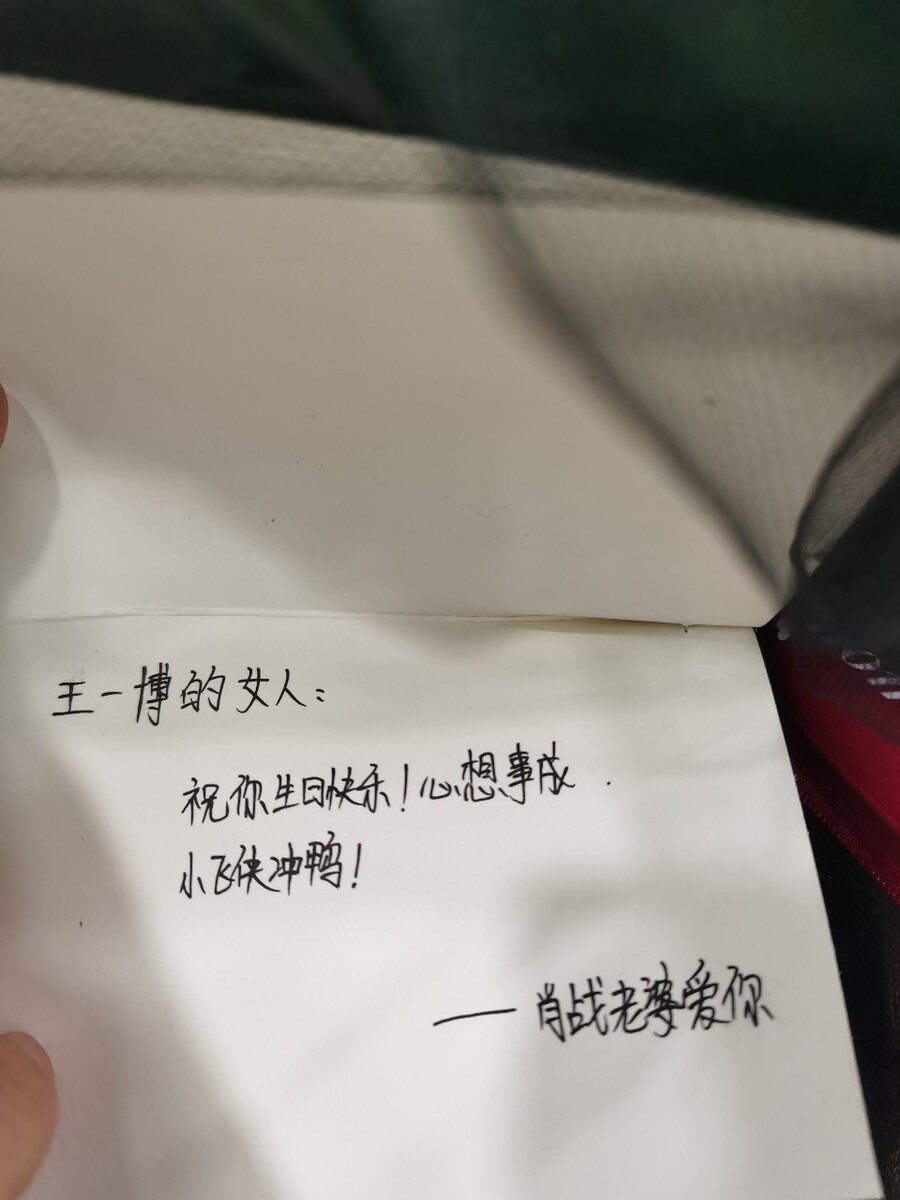 王一博的女人：
祝你生日快乐！心想事成．
小飞侠冲鸭！
——肖战老婆爱你